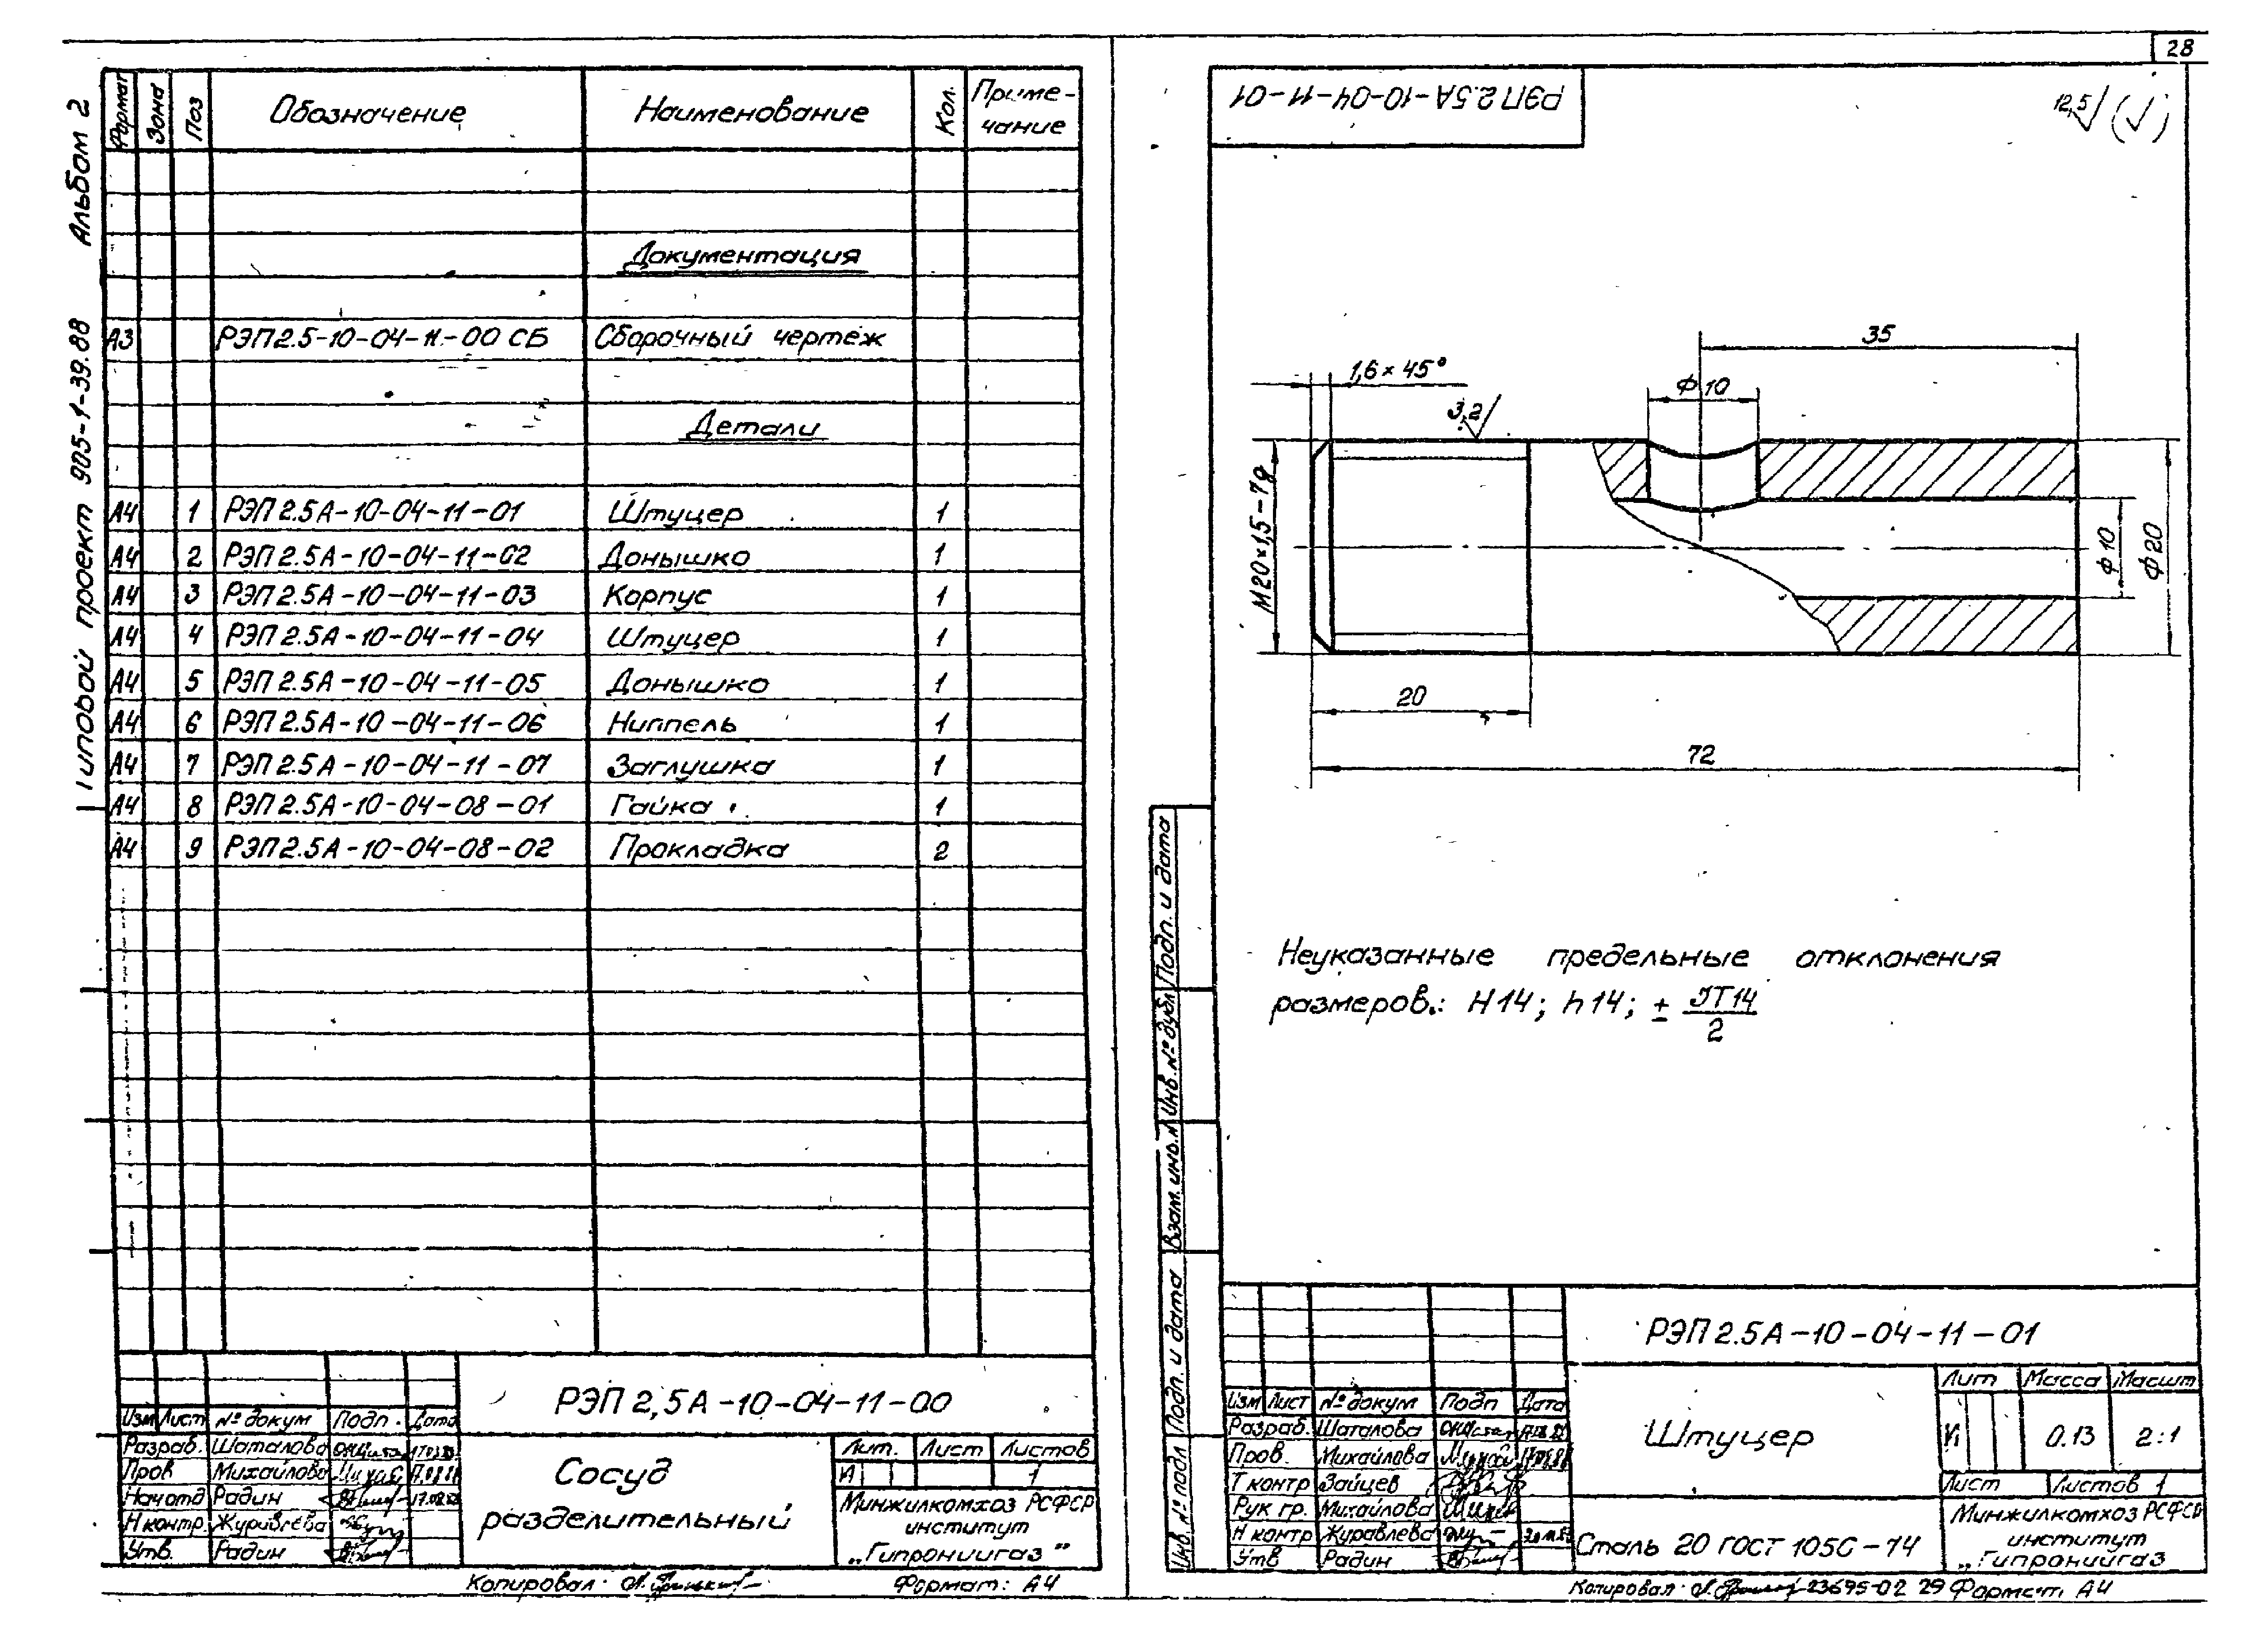 28
Альбом 2
Типовой проект 905-1-39.88
Формат Зона Поз Обозначение Наименование Кол. Приме-
чание
Документация
А3 РЭП2.5-10-04-11-00 СБ Сборочный чертеж
Детали
А4 1 РЭП2.5А-10-04-11-01 Штуцер 1
А4 2 РЭП2.5А-10-04-11-02 Донышко 1
А4 3 РЭП2.5А-10-04-11-03 Корпус 1
А4 4 РЭП2.5А-10-04-11-04 Штуцер 1
А4 5 РЭП2.5А-10-04-11-05 Донышко 1
А4 6 РЭП2.5А-10-04-11-06 Ниппель 1
А4 7 РЭП2.5А-10-04-11-07 Заглушка 1
А4 8 РЭП2.5А-10-04-08-01 Гайка 1
А4 9 РЭП2.5А-10-04-08-02 Прокладка 2
РЭП 2,5А-10-04-11-00
Изм Лист № докум Подп. Дата
Разраб. Шаталова
Пров Михайлова
Нач отд Радин
Н контр Журавлева
Утв. Радин
Сосуд
разделительный
Лит. Лист Листов
И 1
Минжилкомхоз РСФСР
институт
„Гипрониигаз"
Копировал: Формат: А4
РЭП2.5А-10-04-11-01
12,5 (√)
35
1,6×45°
ф10
3,2
М20×1,5-7g
ф10
ф20
20
72
Неуказанные предельные отклонения
размеров.: Н14; h14; ± JT14
2
Подп. и дата
Инв. № дубл
Взам. инв. №
Подп. и дата
Инв. № подл
РЭП2.5А-10-04-11-01
Изм Лист № докум Подп Дата
Разраб. Шаталова
Пров. Михайлова
Т контр Зайцев
Рук гр. Михайлова
Н контр Журавлева
Утв Радин
Штуцер
Лит Масса Масшт
И 0.13 2:1
Лист Листов 1
Сталь 20 ГОСТ 1050-74
Минжилкомхоз РСФСР
институт
„Гипрониигаз
Копировал: 23695-02 29 Формат А4